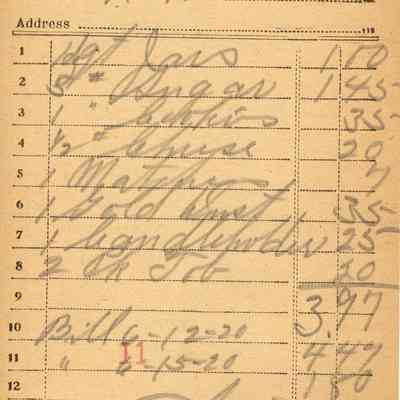 Address
1 qt Jars 1 10
2 5 # Sugar 1 45
3 1 " 35
4 1/2 # Cheese 20
5 1 Matches 7
6 1 Gold Dust 35
7 1 Candleholder 25
8 2 Pk Tob 20
9 3.97
10 Bill 6-12-20
11 11 " 6-15-20 4 47
12